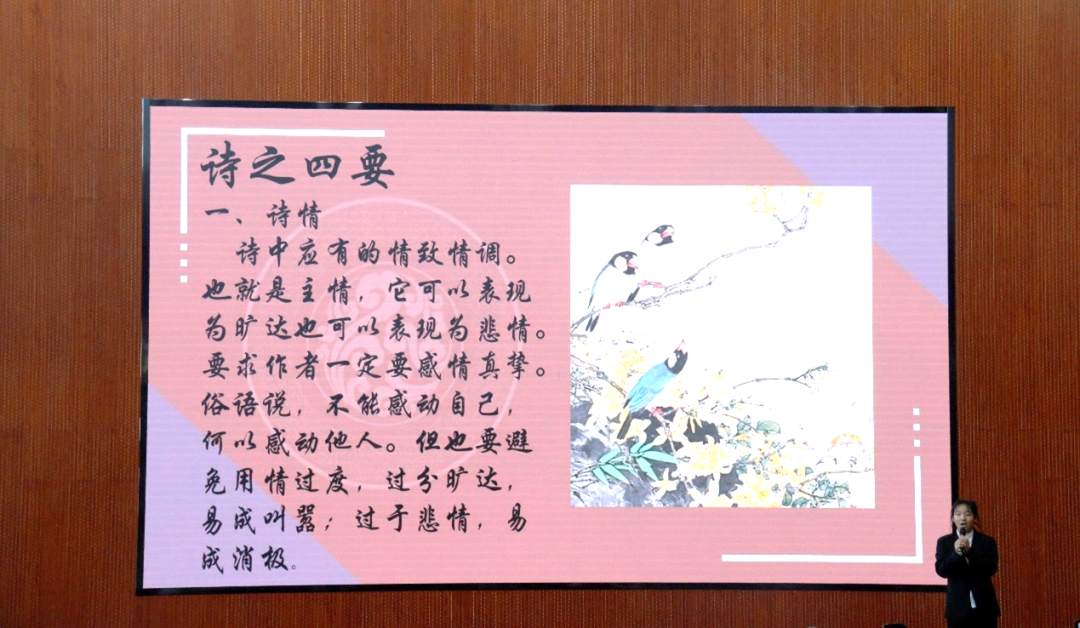 诗之四要
一、诗情
诗中应有的情致情调。
也就是主情，它可以表现
为旷达也可以表现为悲情。
要求作者一定要感情真挚。
俗语说，不能感动自己，
何以感动他人。但也要避
免用情过度，过分旷达，
易成叫嚣；过于悲情，易
成消极。